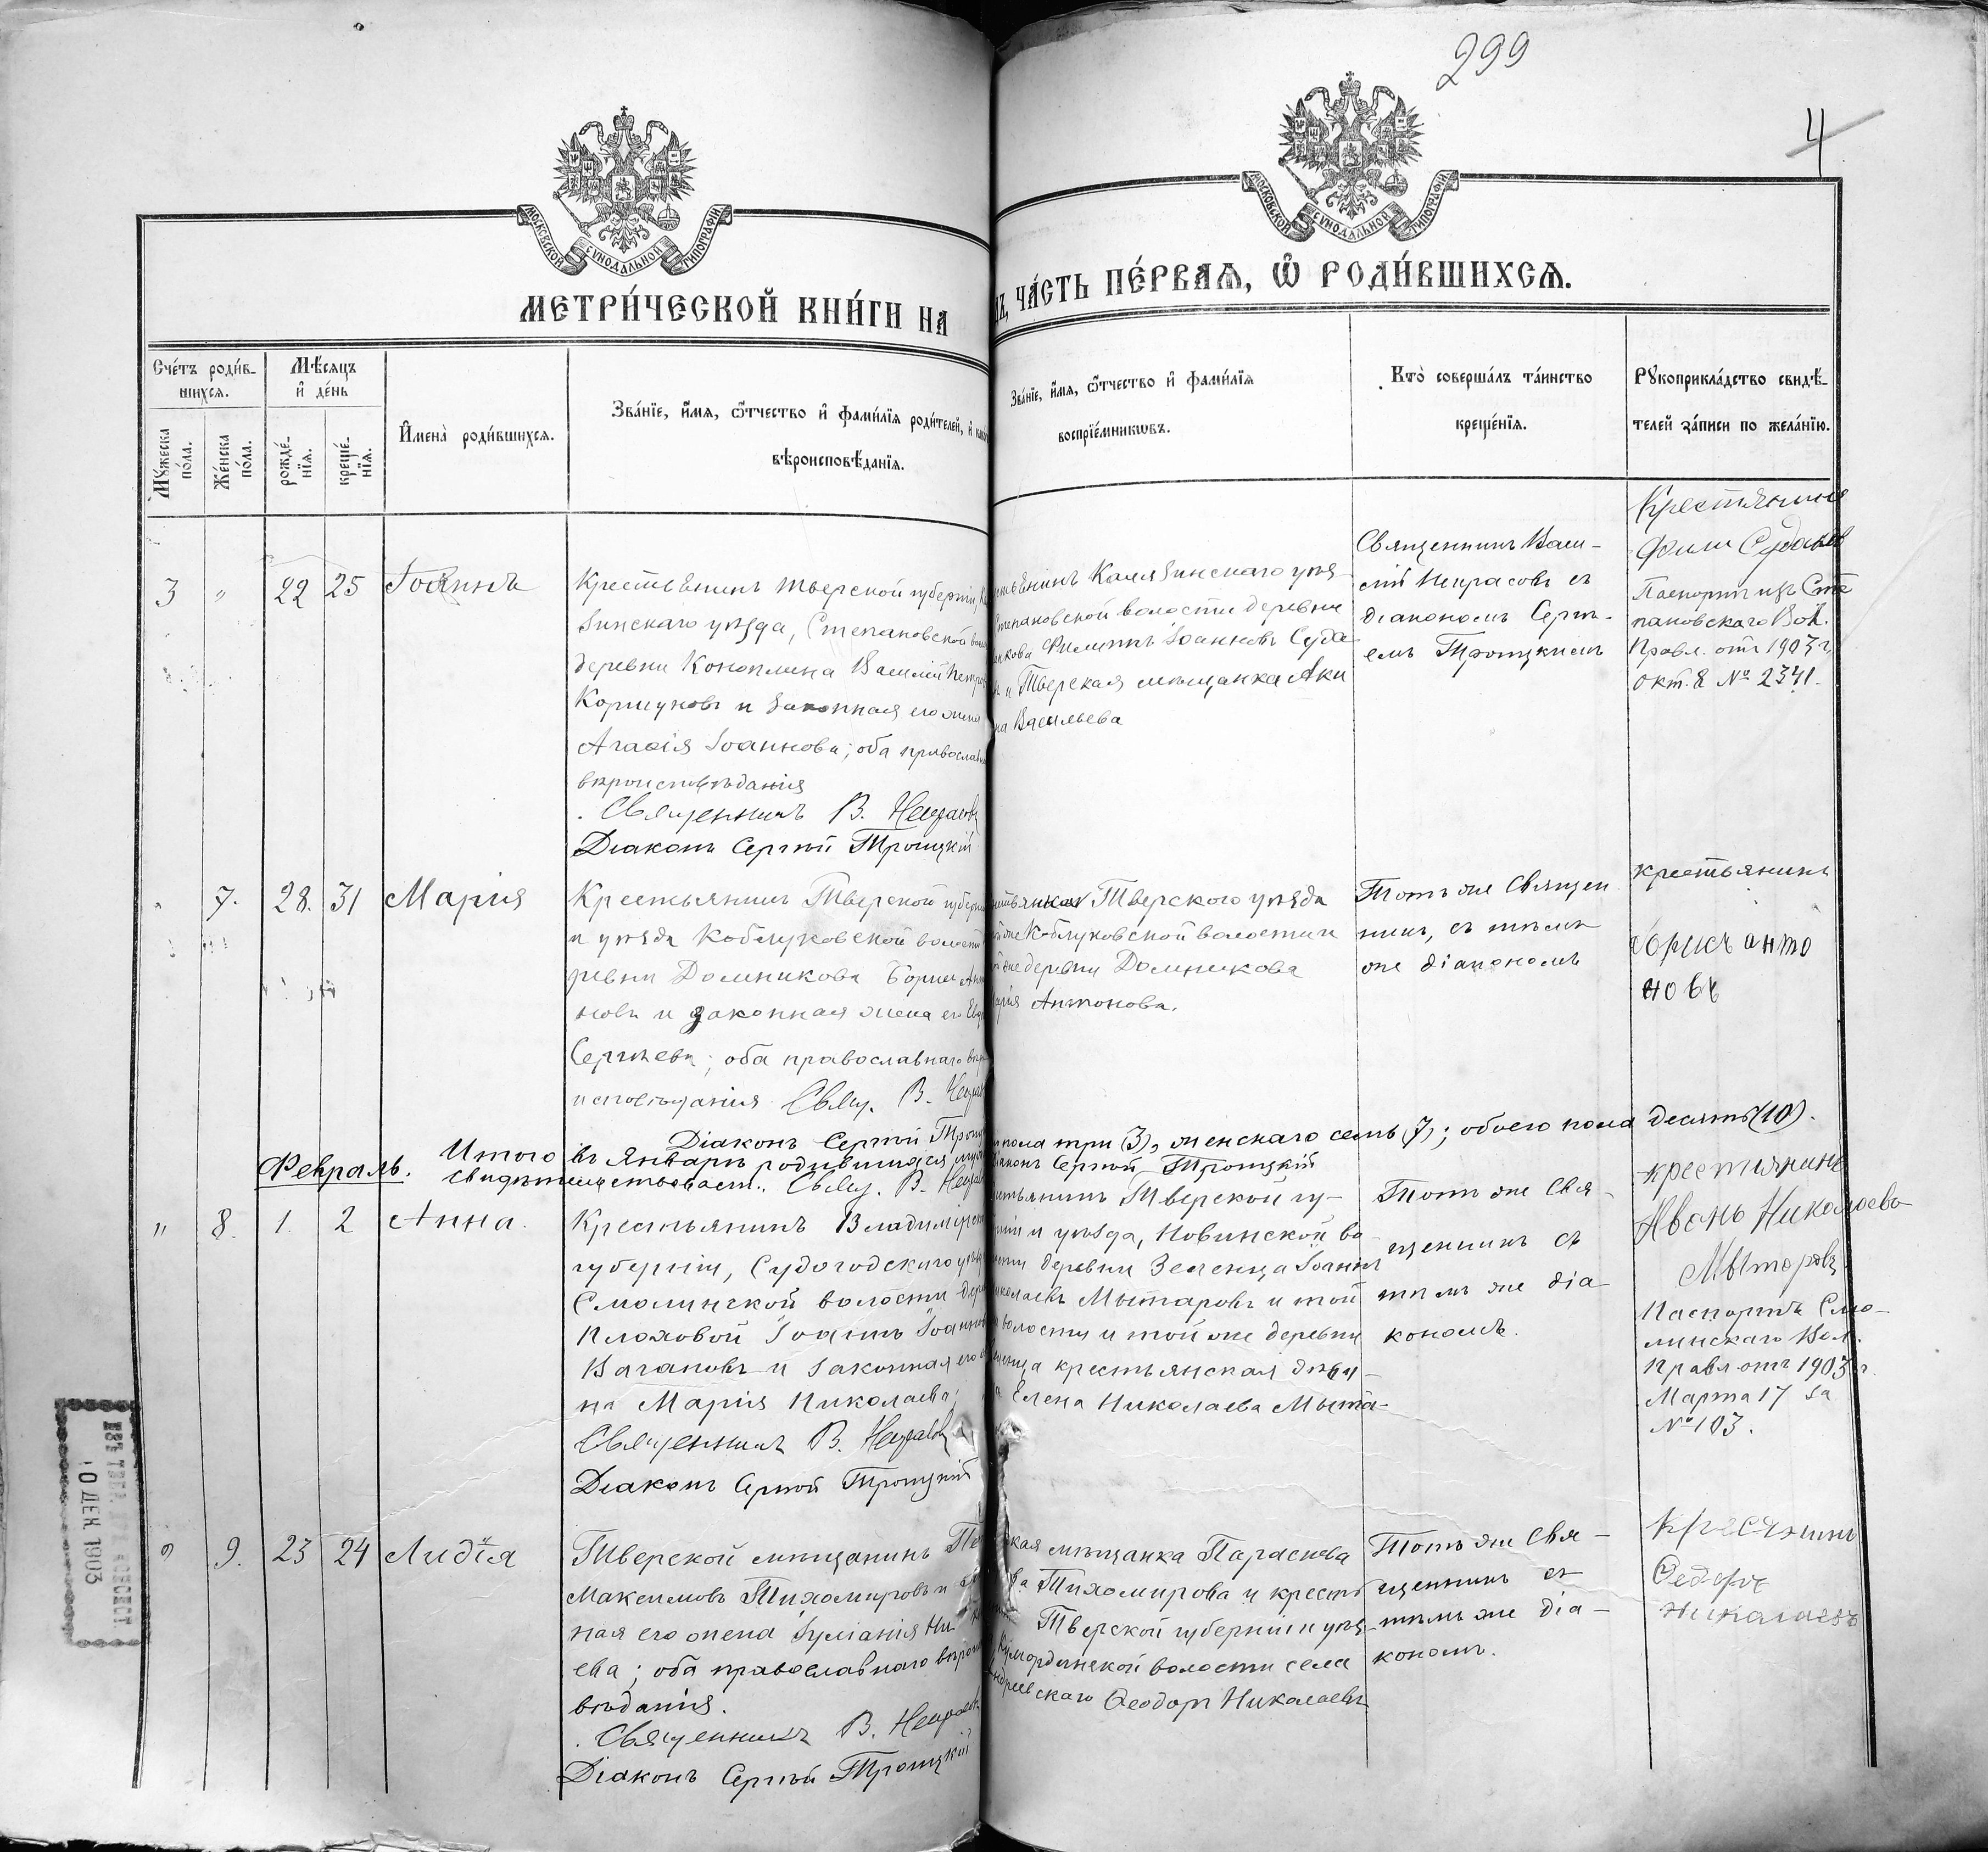 299
4
МОСКОВСКОЙ СѴНОДАЛЬНОЙ ТИПОГРАФІИ
МОСКОВСКОЙ СѴНОДАЛЬНОЙ ТИПОГРАФІИ
МЕТРИ́ЧЕСКОЙ КНИ́ГИ НА
ЧА́СТЬ ПЕ́РВАѦ, Ѽ РОДИ́ВШИХСѦ.
Сче́тъ роди́в-
шихсѧ.
Мѣ́сѧцъ
и҆ де́нь
Мꙋ́жеска
по́ла.
Же́нска
по́ла.
рожде́-
нїѧ.
креще́-
нїѧ.
И҆мена̀ роди́вшихсѧ.
Зва́нїе, и҆́мѧ, ѻ҆́тчество и҆ фами́лїѧ роди́телей, и҆
вѣроисповѣ́данїѧ.
Зва́нїе, и҆́мѧ, ѻ҆́тчество и҆ фами́лїѧ
воспрїе́мникѡвъ.
Кто̀ соверша́лъ та́инство
креще́нїѧ.
Рꙋкоприкла́дство свидѣ́-
телей за́писи по жела́нїю.
3 " 22 25 Іоаннъ
Крестьянинъ Тверской губерніи,
зинскаго уѣзда, Степановской
деревни Коноплина Василій
Коршуновъ и законная его жена
Агаѳія Іоаннова; оба
вѣроисповѣданія
Священникъ В. Некрасовъ
Діаконъ Сергій Троицкій
Калязинскаго уѣз-
Степановской волости деревни
Филиппъ Іоанновъ Суда
и Тверская мѣщанка Аки
на Васильева
Священникъ Васи-
лій Некрасовъ съ
діакономъ Серги-
емъ Троицкимъ
Крестьянинъ
Фили Судаков
Паспортъ изъ Сте
пановскаго Вол.
Правл. отъ 1903 г.
Окт. 8 № 2341.
" 7. 28. 31 Марія
Крестьянинъ Тверской
и уѣзда Коблуковской волости
ревни Домникова Борисъ
новъ и законная жена его
Сергѣева; оба православнаго
исповѣданія Свящ. В.
Діаконъ Сергій
Тверского уѣзда
же Коблуковской волости и
же деревни Домникова
Антонова.
Тотъ же Священ
никъ, съ тѣмъ
же діакономъ
крестьянинъ
борисъ анто
новъ
Итого въ Январѣ родившихся
пола три (3), женскаго семь (7); обоего пола десять (10).
Свидѣтельствоваст.: Свящ. В.
Сергій Троицкій
Февраль.
" 8. 1. 2 Анна.
Крестьянинъ
губерніи, Судогодскаго
Смолинской волости
Плоховой Іоаннъ
Вагановъ и законная его
на Марія Николаева;
Священникъ В. Некрасовъ
Діаконъ Сергій Троицкій
Тверской гу-
и уѣзда, Новинской во
деревни Зеленца Іоаннъ
Мытаровъ и той
волости и той же деревни
крестьянская дѣви-
Елена Николаева Мыта-
Тотъ же Свя-
щенникъ съ
тѣмъ же діа
кономъ.
крестиянинъ
Иванъ Николаевъ
Мытаровъ
Паспортъ Смо-
линскаго Вол.
Правл отъ 1903 г.
Марта 17 за
№ 103.
" 9. 23 24 Лидія
Тверской мѣщанинъ
Максимовъ Тихомировъ и
ная его жена Іуліанія
ева; оба православнаго
вѣданія.
Священникъ В. Некрасовъ
Діаконъ Сергій Троицкій
мѣщанка Параскева
Тихомирова и кресть
Тверской губерніи и уѣз-
волости села
скаго Ѳеодоръ Николаевъ
Тотъ же Свя-
щенникъ съ
тѣмъ же діа-
кономъ.
Ѳедоръ
Николаевъ
10 ДЕК 1903